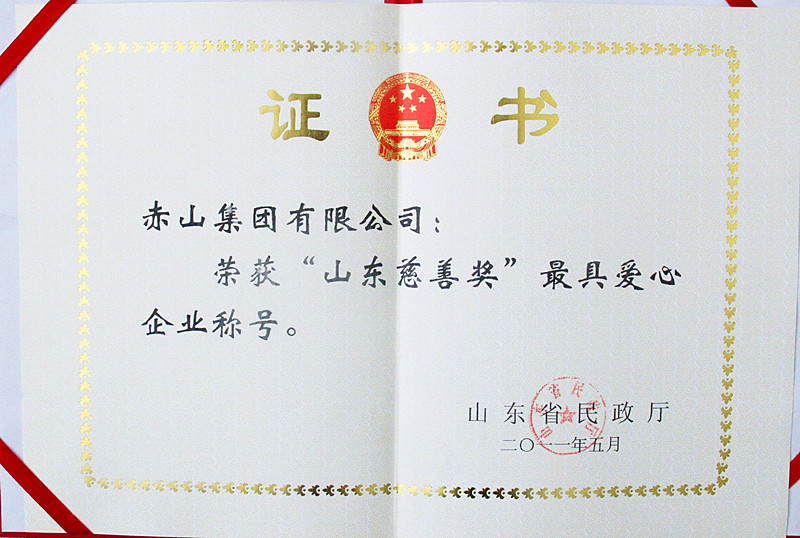 证书
赤山集团有限公司：
荣获“山东慈善奖”最具爱心
企业称号。
山东省民政厅
二〇一一年五月
山东省民政厅